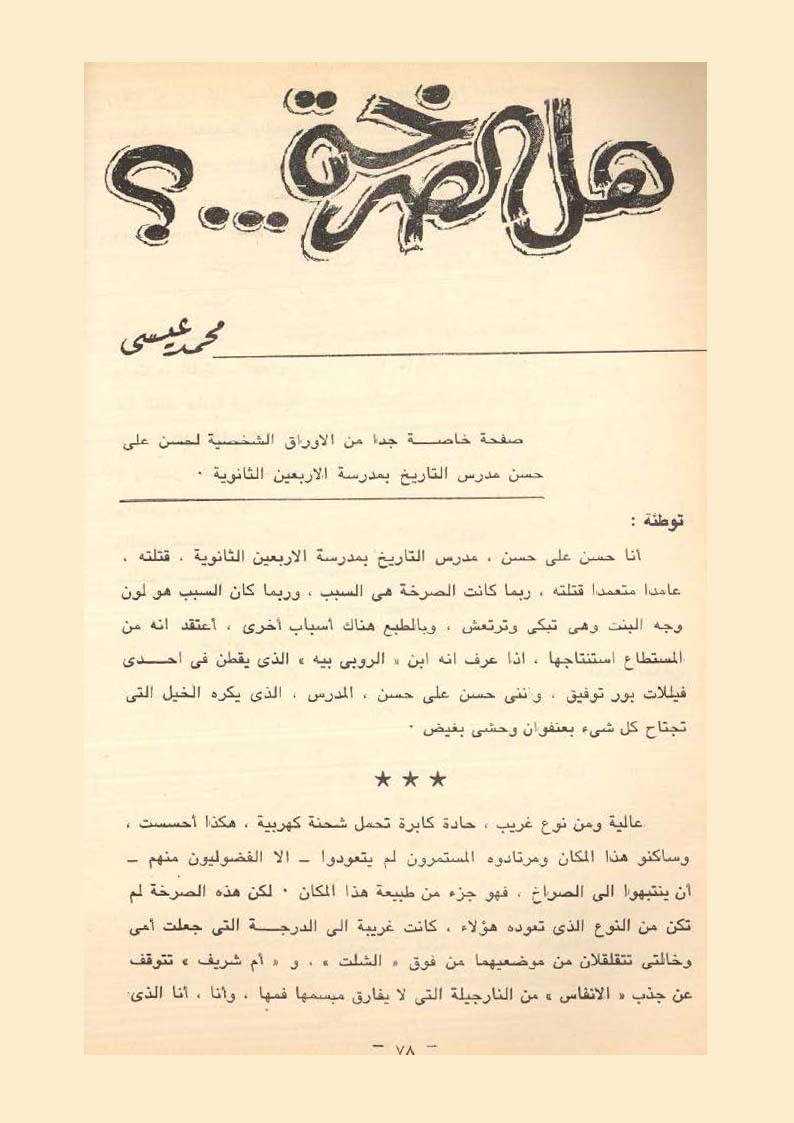 هل الصرخة ...؟
محمد عيسى
صفحة خاصــة جدا من الاوراق الشخصية لحسن على
حسن مدرس التاريخ بمدرسة الاربعين الثانوية ٠
توطئة :
أنا حسن على حسن ، مدرس التاريخ بمدرسة الاربعين الثانوية ، قتلته ،
عامدا متعمدا قتلته ، ربما كانت الصرخة هى السبب ، وربما كان السبب هو لون
وجه البنت وهى تبكى وترتعش ، وبالطبع هناك أسباب أخرى ، أعتقد انه من
المستطاع استنتاجها ، اذا عرف انه ابن « الروبى بيه » الذى يقطن فى احــدى
فيللات بور توفيق ، واننى حسن على حسن ، المدرس ، الذى يكره الخيل التى
تجتاح كل شىء بعنفوان وحشى بغيض ٠
★ ★ ★
عالية ومن نوع غريب ، حادة كابرة تحمل شحنة كهربية ، هكذا أحسست ،
وساكنو هذا المكان ومرتادوه المستمرون لم يتعودوا – الا الفضوليون منهم –
أن ينتبهوا الى الصراخ ، فهو جزء من طبيعة هذا المكان ٠ لكن هذه الصرخة لم
تكن من النوع الذى تعوده هؤلاء ، كانت غريبة الى الدرجــة التى جعلت أمى
وخالتى تتقلقلان من موضعيهما من فوق « الشلت » ، و « أم شريف » تتوقف
عن جذب « الانفاس » من النارجيلة التى لا يفارق مبسمها فمها ، وأنا ، أنا الذى
– ٧٨ –